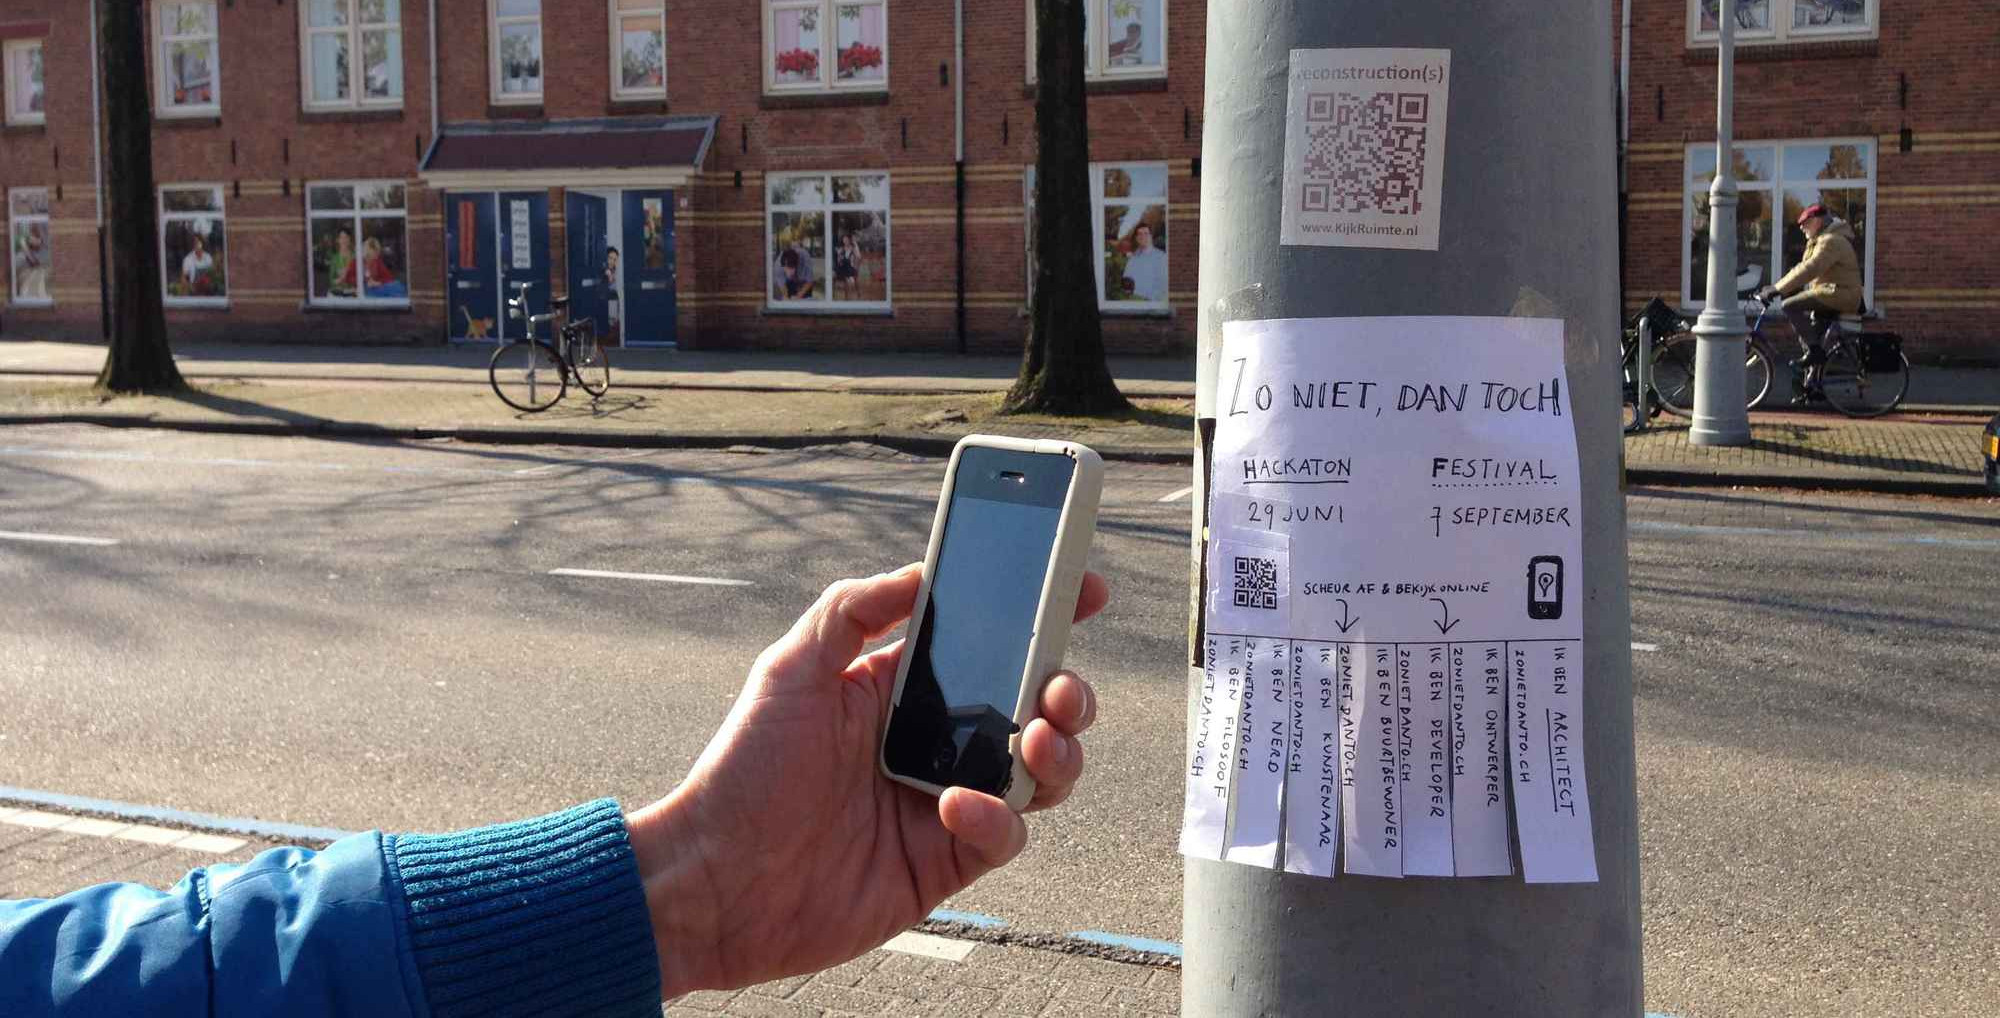 econstruction(s)
www.KijkRuimte.nl
ZO NIET, DAN TOCH
HACKATON
FESTIVAL
29 JUNI
7 SEPTEMBER
SCHEUR AF & BEKIJK ONLINE
ZONIETDANTO.CH
IK BEN FILOSOOF
ZONIETDANTO.CH
IK BEN NERD
ZONIETDANTO.CH
IK BEN KUNSTENAAR
ZONIETDANTO.CH
IK BEN BUURTBEWONER
ZONIETDANTO.CH
IK BEN DEVELOPER
ZONIETDANTO.CH
IK BEN ONTWERPER
ZONIETDANTO.CH
IK BEN ARCHITECT